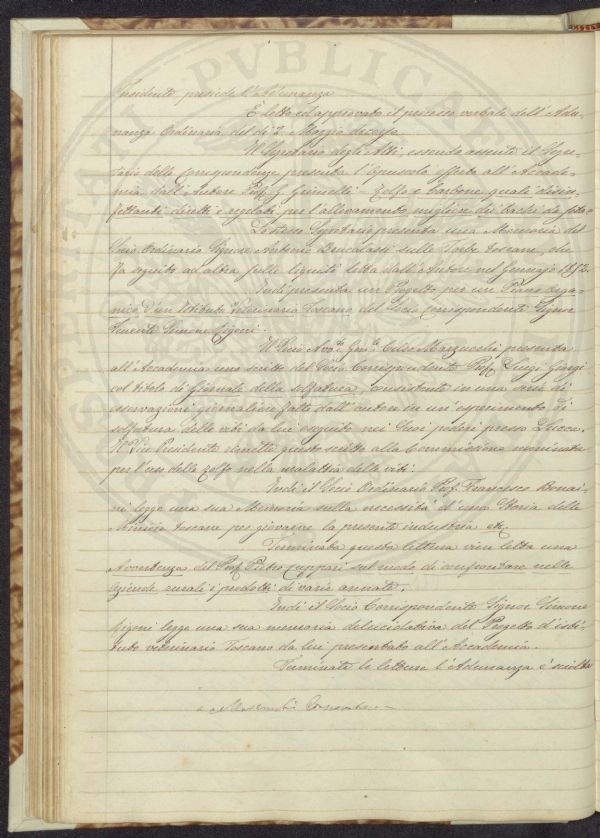 Presidente, presiede l'Adunanza
È letto ed approvato il processo verbale dell'Adu-
nanza Ordinaria del dì 2 Maggio decorso.
Il Segretario degli Atti, essendo assente il Segre-
tario delle Corrispondenze presenta l'Opuscolo offerto all'Accade-
mia dall'Autore Prof. G. Zolfo e Carbone quali disin-
fettanti diretti e regolati per l'allevamento migliore dei bachi da seta
Lo stesso Segretario presenta una Memoria del
Socio Ordinario Signore Antonio Brucalassi sulle Torbe toscane, che
fa seguito ad altra letta dall'Autore nel Gennajo 1852.
Indi presenta un Progetto per un Piano orga-
nico d'un Istituto Veterinario Toscano del Socio Corrispondente Signor
Tenente Simone
Il Socio Avvto. Genle. Celso Marzucchi presenta
all'Accademia uno scritto del Socio Corrispondente Prof. Luigi Giorgi
col titolo di Giornale della solfatura, consistente in una serie di
osservazioni giornaliere fatte dall'autore in un'esperimento di
solfatura delle viti da lui eseguito nei suoi poderi presso Lucca.
Il Vice Presidente rimette questo scritto alla Commissione nominata
per l'uso dello zolfo nella malattia delle viti.
Indi il Socio Ordinario Prof. Francesco Bonai-
ni legge una sua Memoria sulla necessità d'una Storia delle
Miniere toscane per giovarne la presente industria etc.
Terminata questa lettura vien letta una
Avvertenza del Prof. Pietro Cuppari sul modo di confrontare nelle
aziende rurali i prodotti di varie annate.
Indi il Socio Corrispondente Signor Simone
legge una sua memoria delucidativa del Progetto d'isti-
tuto veterinario Toscano da lui presentato all'Accademia.
Terminate le letture l'Adunanza è sciolta
SPERITATI PVBLICAE